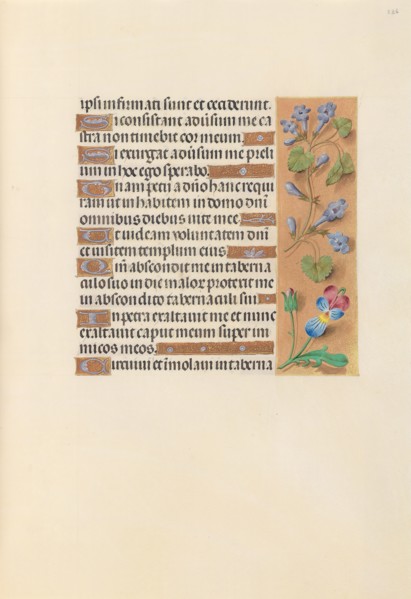 ipsi infirmati sunt et ceciderunt.
Si consistant adūsum me ca
stra non timebit cor meum.
Si exurgat adūsum me preli
um in hoc ego sperabo.
Unam petii a dño hanc requi
ram ut inhabitem in domo dñi
omnibus diebus vite mee.
Ut videam voluntatem dñi
et visitem templum eius.
Qm̄ abscondit me in taberna
culo suo in die malor protexit me
in abscondito tabernaculi sui
In petra exaltavit me et nunc
exaltavit caput meum super ini
micos meos.
Circuivi et im̄olavi in taberna